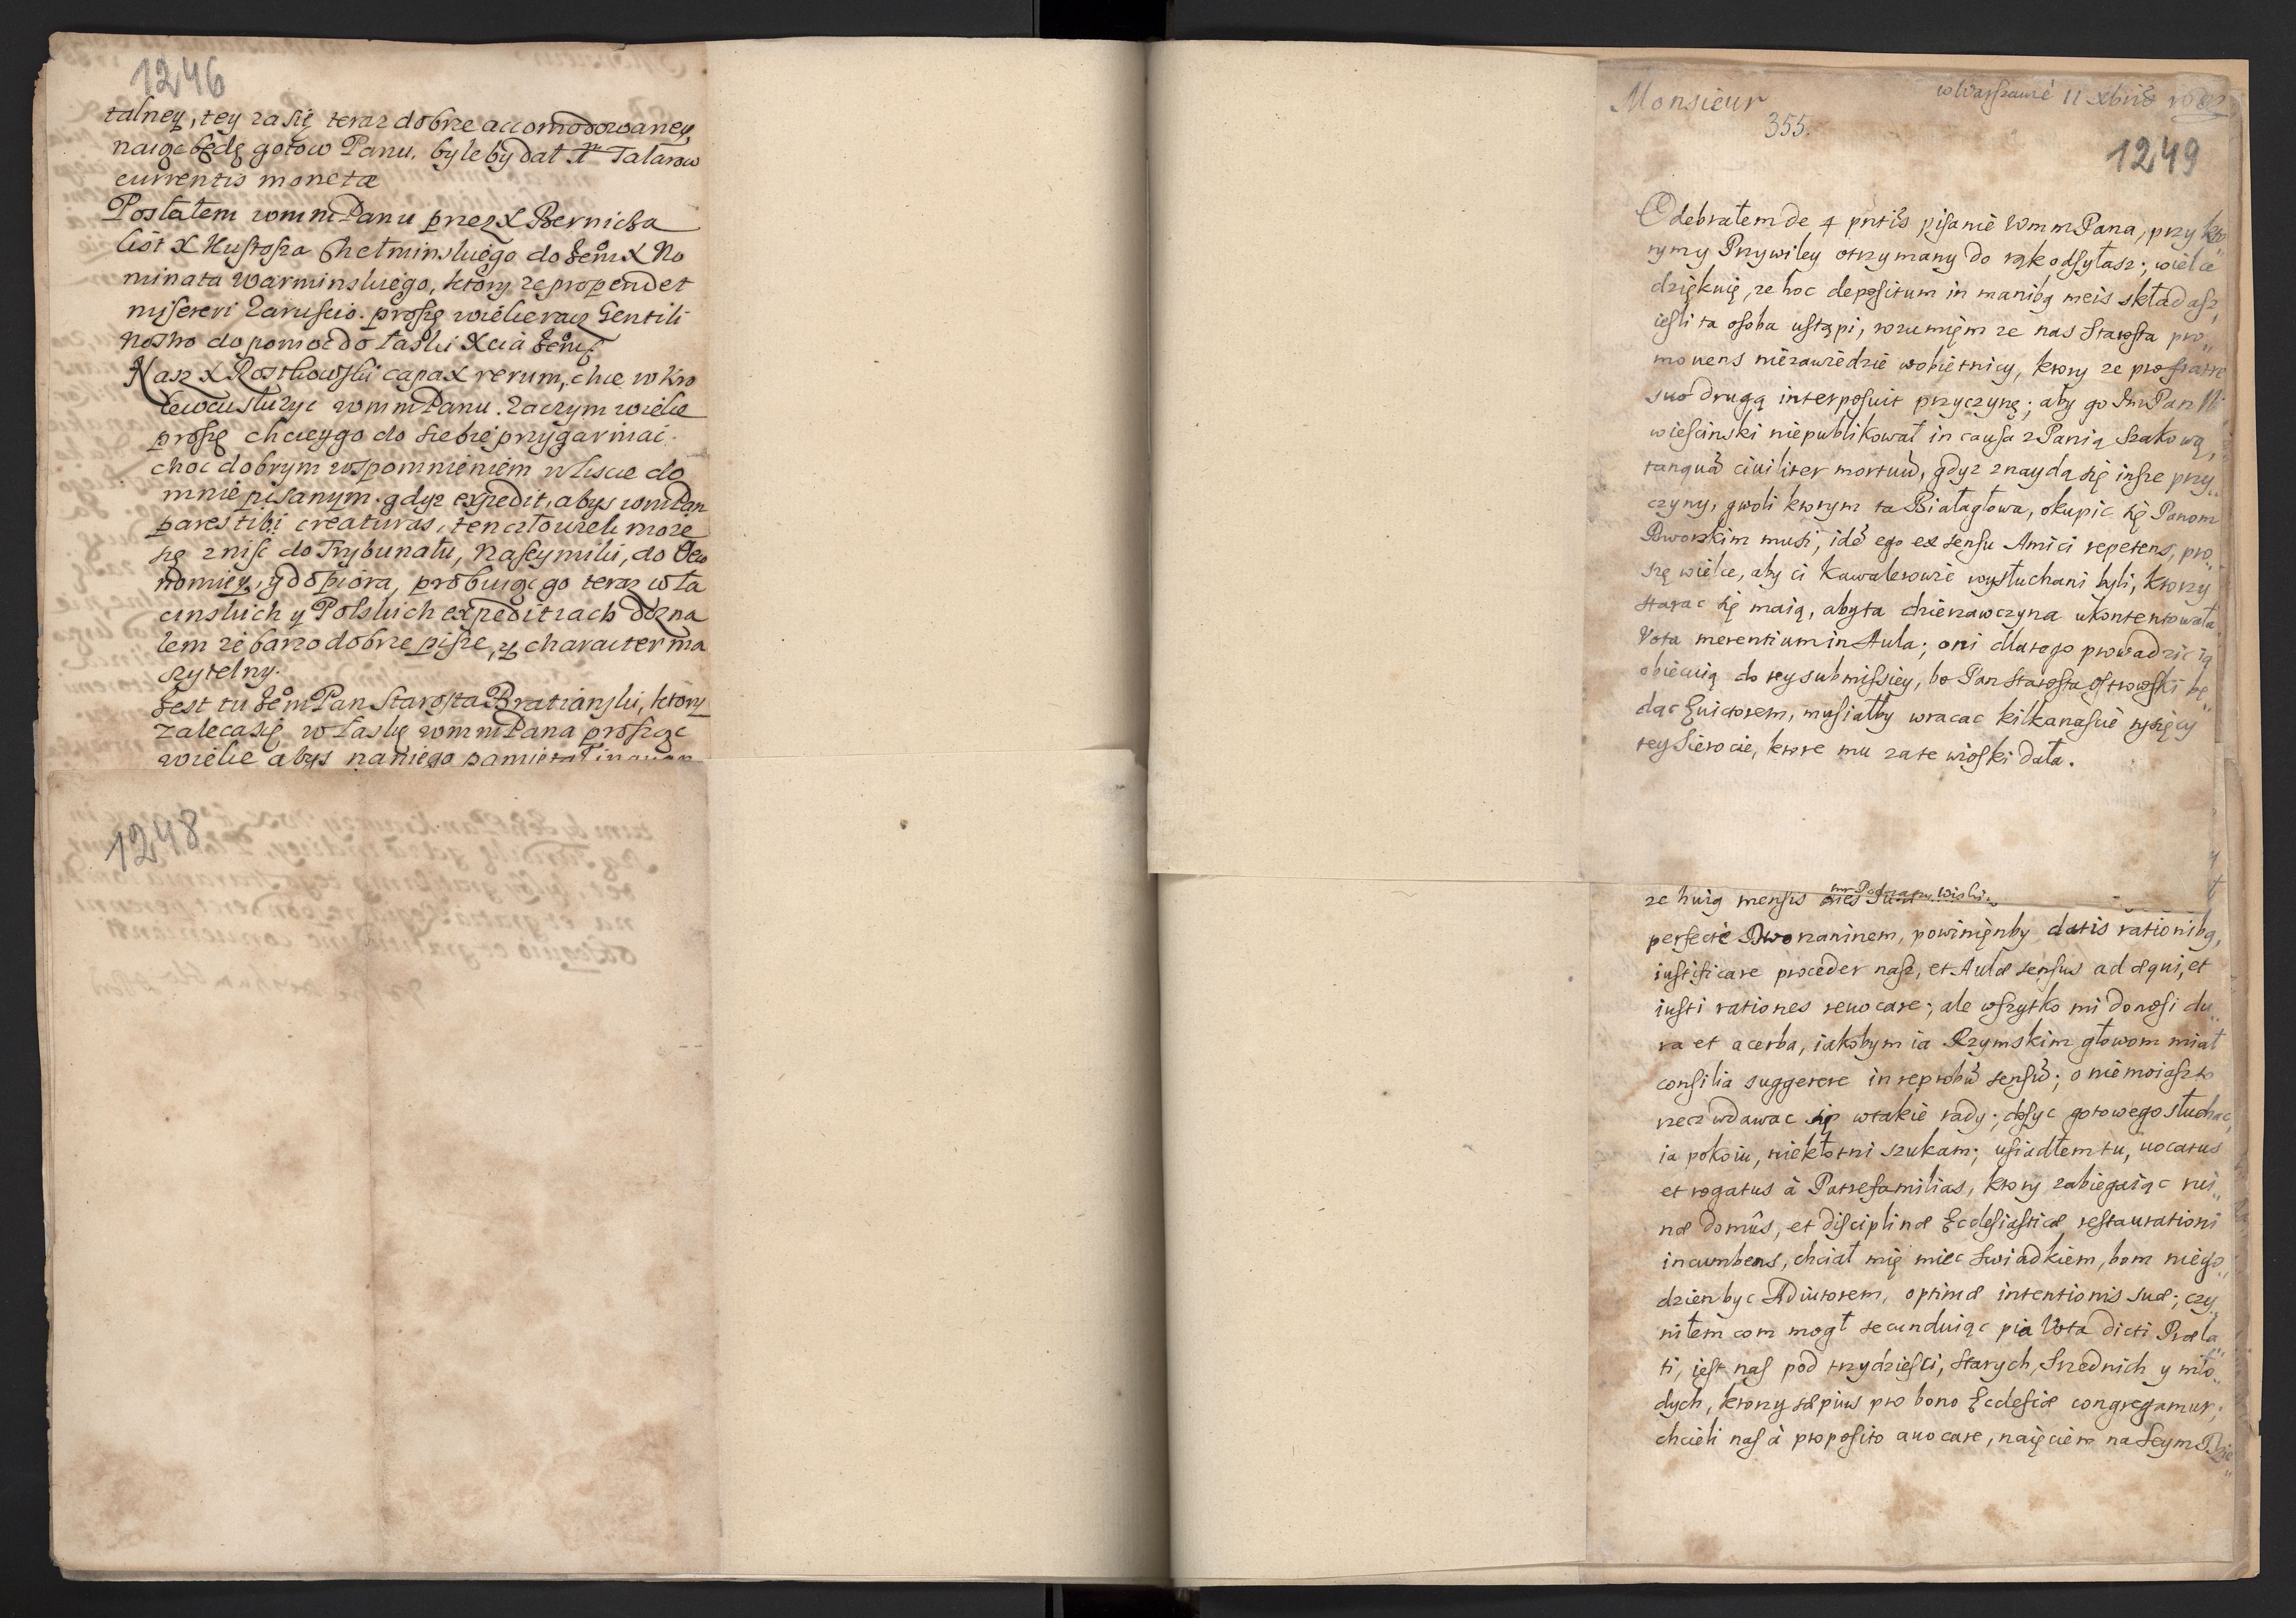 1246
talney, tey zasię teraz dobrze accomodowaney,
naiąc będę gotow Panu, byle by dał Talarow
currentis monetæ
Posłałem wmmPanu przez X Bernicha
list X Kustosza Chełminskiego do X No
minata Warminskiego, ktory ze propendet
misereri Zaruscio. proszę wielce racz Gentili
nostro do pomoc do łaski Xcia
Nasz X Roszkowski capax rerum, chce w Kro
lewcu słuzyc wmmPanu. Zaczym wielce
proszę chcieygo do siebie przygarniac.
choc dobrym wspomnieniem w liscie do
mnie pisanym. gdyz expedit, abys wmPan
pares tibi creaturas, ten człowiek moze
się zniść do Trybunału, na seymiki, do Oeco
nomiey, y do piora, probuiąc go teraz w ła
cinskich y Polskich expeditiach dozna
łem ze barzo dobrze pisze, y character ma
czytelny.
Jest tu Pan Starosta Bratianski, ktory
zaleca się w łaskę wmmPana prosząc
wielce abys na niego pamiętał
1248
Monsieur
w Warszawie 11 xbris
355.
1249
Odebrałem de 4 pntis pisanie WmmPana, przy kto
rymy Przywiley otrzymany do rąk odsyłasz; wielce
dziękuię, ze hoc depositum in manibq meis składasz,
iesli ta osoba ustąpi, rozumięm ze nas Starosta pro„
mouens niezawiedzie w obietnicy, ktory ze pro fratre
suo drugą interposuit przyczynę; aby go ImPan
wiescinski niepublikował in causa z Panią Szakową,
tanquã ciuiliter mortuũ, gdyz znaydą się insze przy„
czyny, gwoli ktorym ta Białagłowa, okupic się Panom
Dworskim musi, idẽ ego ex sensu Amici repetens, pro„
szę wielce, aby ci Kawalerowie wysłuchani byli, ktorzy
starac się maią, aby ta dzierzawczyna ukontentowała
Vota merentium in Aula; oni dlatego prowadzic ią
obiecuią do tey submissiey, bo Pan Starosta Ostrowski bę„
dąc Euictorem, musiałby wracac kilkanascie tysięcy
tey Sierocie, ktore mu za te wioski dała.
ze huiq mensis
perfectè Dworzaninem, powinięnby datis rationibq,
iustificare proceder nasz, et Aulæ sensus ad æqui, et
iusti rationes reuocare; ale wszytko mi donosi du„
ra et acerba, iakobym ia Rzymskim głowom miał
consilia suggerere in reprobũ sensũ; o nie moiaszto
rzecz wdawac się w takie rady; dosyc gotowego słuchac,
ia pokoiu, niekłotni szukam; usiadłem tu, uocatus
et rogatus à Patrefamilias, ktory zabiegaiąc rui„
næ domûs, et disciplinæ Ecclesiasticæ restaurationi
incumbens, chciał mię miec swiadkiem, bom niego„
dzien byc Adiutorem, optimæ intentionis suæ; czy„
niłem com mogł secunduiąc pia Vota dicti Præla„
ti, iest nas pod trzydziesci, Starych, Srzednich y mło„
dych, ktorzy sæpius pro bono Ecclesiæ congregamur;
chcieli nas à proposito auocare, naięciem na Seym